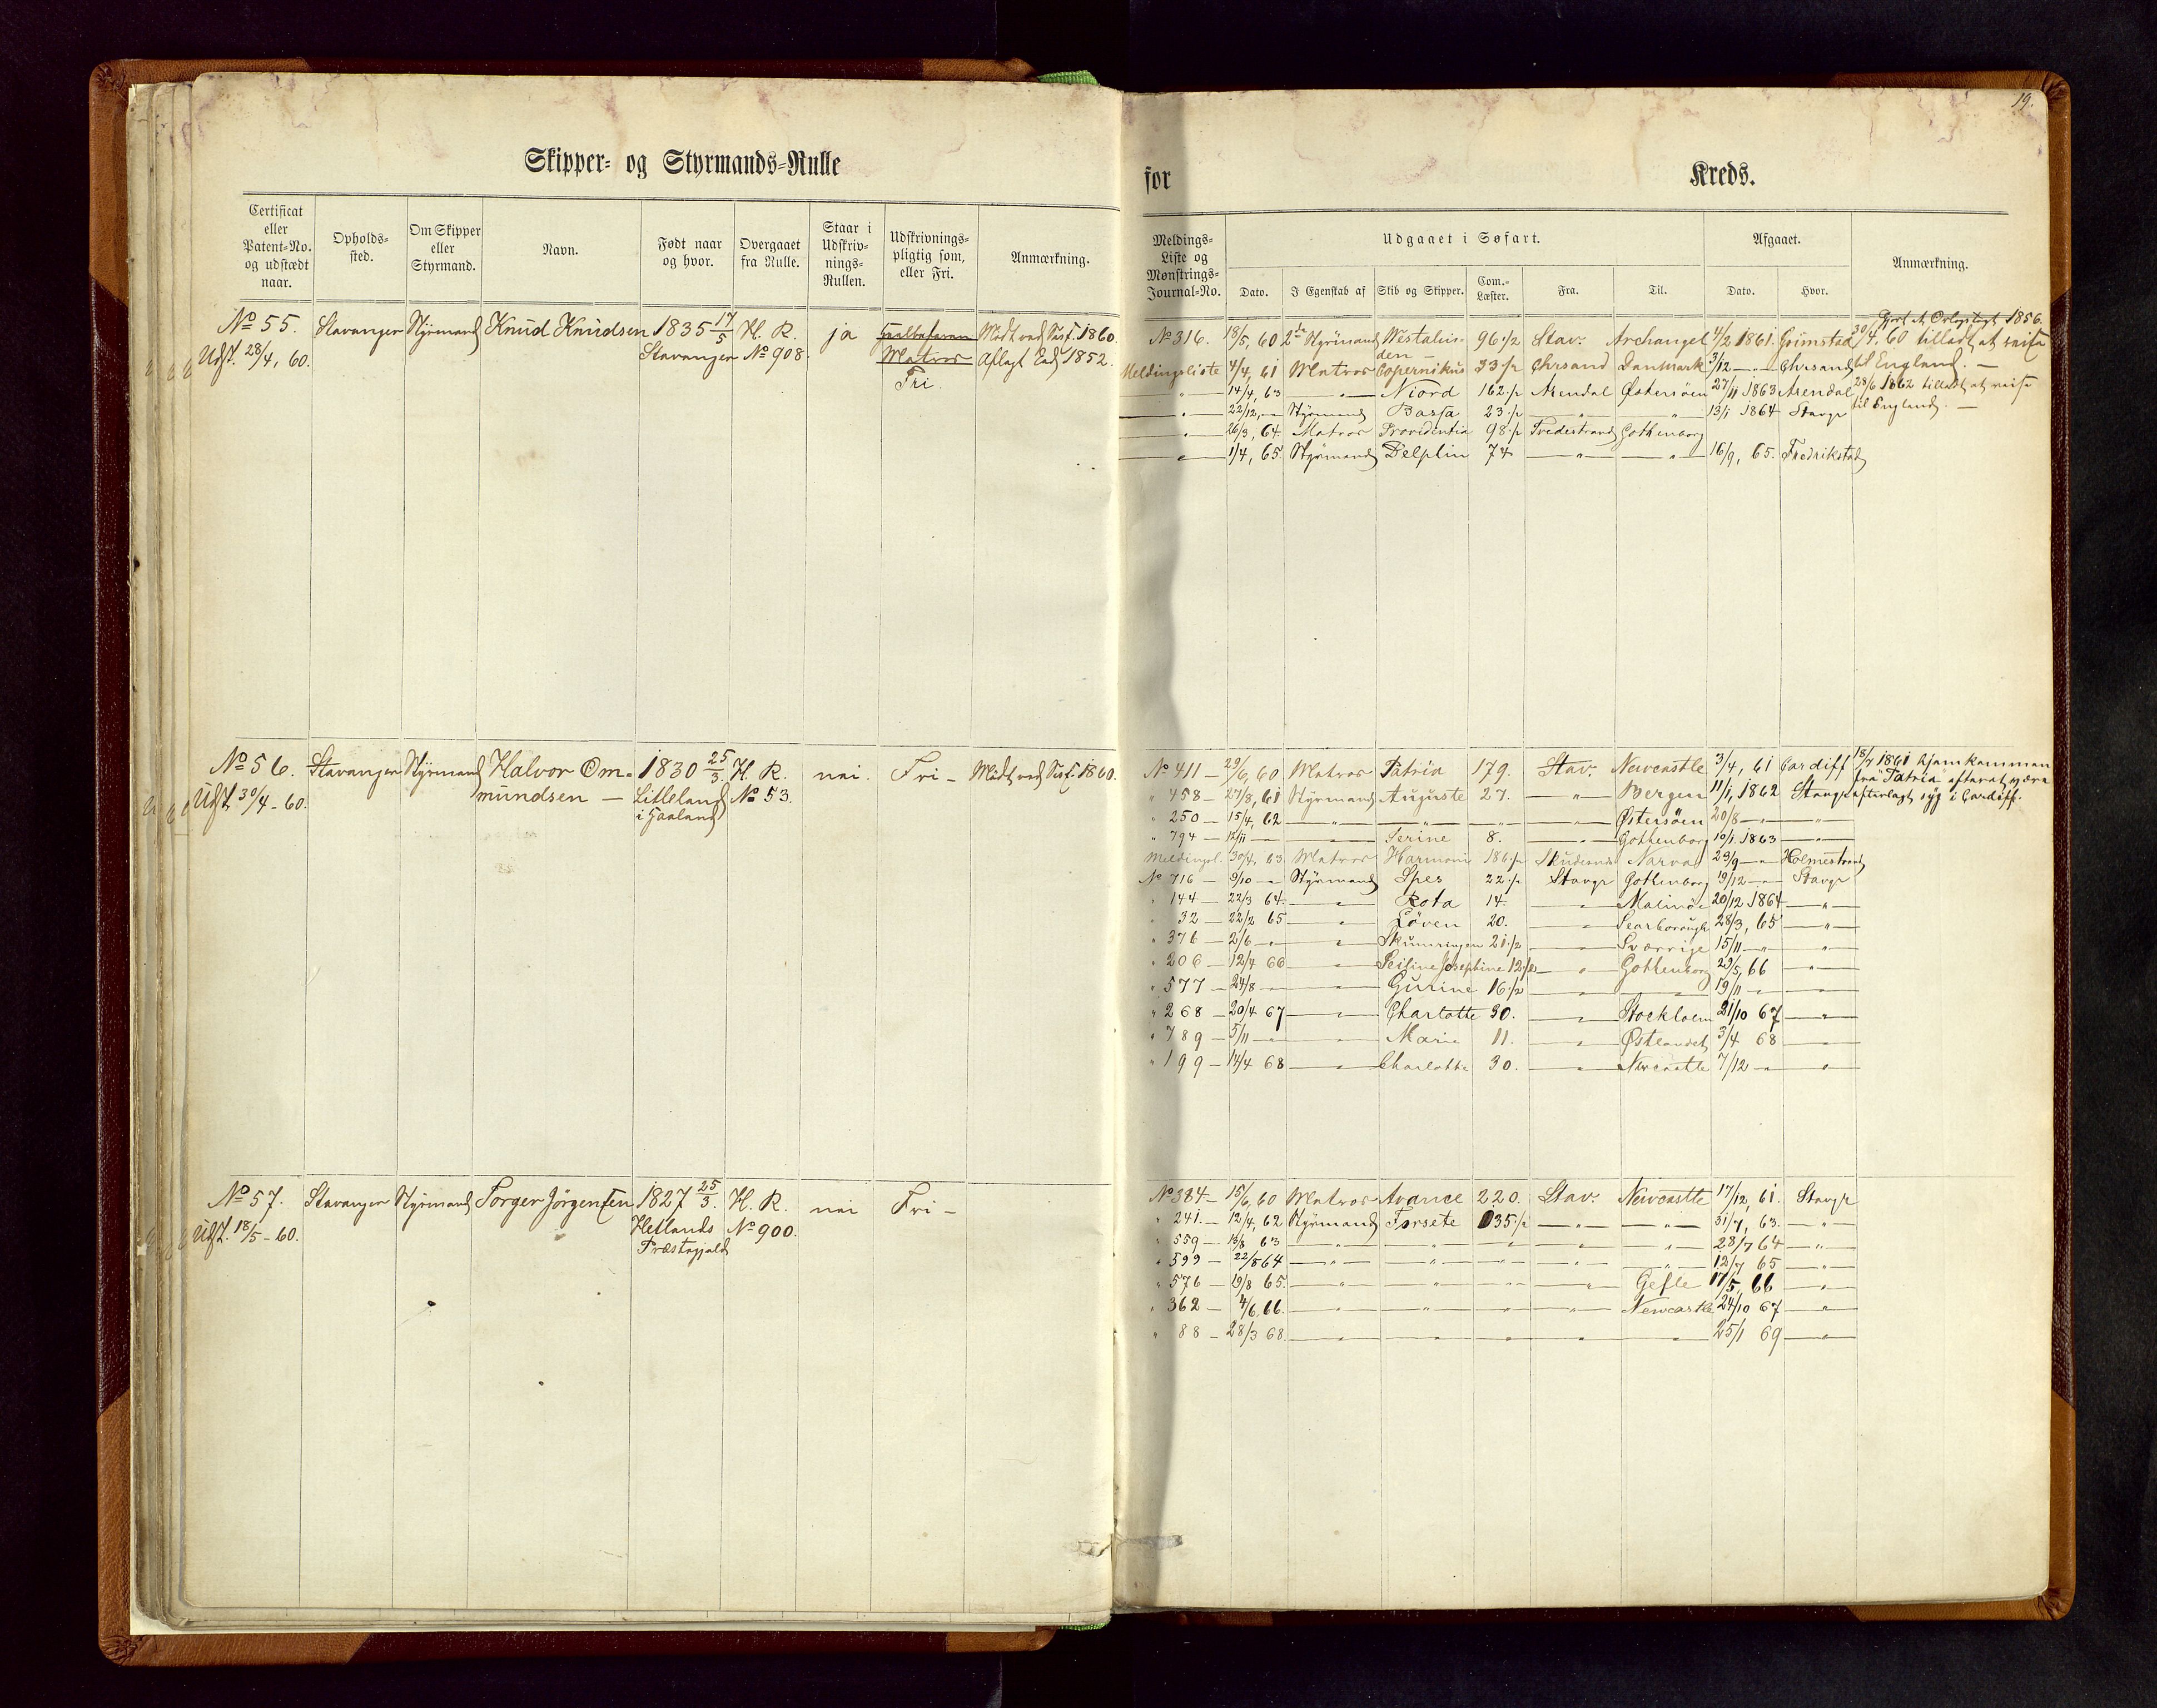 19.
Skipper- og Styrmands-Rulle
for Kreds.
Certificat eller Patent-No. og udstædt naar.
Opholds-sted.
Om Skipper eller Styrmand.
Navn.
Født naar og hvor.
Overgaaet fra Rulle.
Staar i Udskriv-nings-Rullen.
Udskrivnings-pligtig som, eller Fri.
Anmærkning.
Meldings-Liste og Mønstrings-Journal-No.
Udgaaet i Søfart.
Dato. I Egenskab af Skib og Skipper. Com.-Læster. Fra. Til.
Afgaaet.
Dato. Hvor.
Anmærkning.
No 55. Stavanger Styrmand Knud Knudsen 1835 17/5 H. R. ja
Udst. 28/4, 60. Stavanger No 908. Matros Aflagt Ed 1852.
Fri.
No 316. 18/5, 60 2den Styrmand Westalin- 96 1/2 Stav. Archangel 4/2 1861. Grimstad
den
Meldingsliste 4/4, 61 Matros Copernikus 33 1/2 Chrsand Danmark 3/12 —"— Chrsand
—"— 14/4, 63 —"— Niord 162 1/2 Arendal Østersøen 27/11 1863 Arendal
—"— 22/12, —"— Styrmand Bassa 23 1/2 —"— —"— 13/1 1864 Stavgr
—"— 26/3, 64 Matros Providentia 98 1/2 Tvedestrand Gothenborg
—"— 1/4, 65. Styrmand Delphin 74 —"— —"— 16/9, 65. Fredrikstad
1856.
30/4, 60 tilladt at reise
til England. —
28/6 1862 tilladt at reise
til England. —
No 56. Stavanger Styrmand Halvor Om- 1830 25/3. H. R. nei. Fri — 1860.
Udst. 30/4 - 60. mundsen — Litleland No 53.
i Haaland
No 411 — 29/6, 60 Matros Patria 179. Stav. Newcastle 3/4, 61 Cardiff
" 458 — 27/8, 61 Styrmand Auguste 27. —"— Bergen 11/1, 1862 Stavgr
" 250 — 15/4, 62 —"— —"— —"— —"— Østersøen 20/8 —"— —"—
" 794 — 12/11 —"— —"— Serine 8. —"— Gothenborg 10/1 1863 —"—
Meldingsl. 30/4, 63 Matros Harmoni 186 1/2 Skudesnes Narva 29/9 —"— Holmestrand
No 716 — 9/10 —"— Styrmand Spes 22 1/2 Stavgr Gothenborg 19/12 —"— Stavgr
" 144 — 22/3 64 —"— Rota 14. —"— Malmöe 20/12 1864 —"—
" 32 — 22/2 65 —"— Löven 20. —"— Scarborough 28/3, 65 —"—
" 376 — 2/6 —"— —"— Skumringen 21 1/2 —"— Sverrige 15/11 —"— —"—
" 206 — 12/4 66 —"— Josephine 12 1/2 —"— Gothenborg 29/5, 66 —"—
" 577 — 24/8 —"— —"— Gurine 16 1/2 —"— —"— 19/11 —"— —"—
" 268 — 20/4 67 —"— Charlotte 30. —"— Stockholm 21/10 67 —"—
" 789 — 5/11 —"— —"— Marie 11. —"— Østlandet 3/4 68 —"—
" 199 — 14/4 68 —"— Charlotte 30. —"— Newcastle 7/12 —"— —"—
18/7 1861 hjemkommen
fra Patria efter at være
efterlagt syg i Cardiff.
No 57. Stavanger Styrmand Torger Jörgensen 1827 25/3. H. R. nei Fri —
Udst. 18/5 - 60. Hetlands No 900.
Præstegjeld
No 384 — 15/6, 60 Matros Avance 220. Stav. Newcastle 17/12, 61. Stavgr
" 241. — 12/4, 62 Styrmand Forsete 135 1/2 —"— —"— 31/7, 63. —"—
" 559 — 13/8 63 —"— —"— —"— —"— —"— 28/7 64 —"—
" 599 — 22/8 64 —"— —"— —"— —"— —"— 12/7 65 —"—
" 576 — 19/8 65. —"— —"— —"— —"— Gefle 17/5, 66 —"—
" 362 — 4/6, 66. —"— —"— —"— —"— Newcastle 24/10 67 —"—
" 88 — 28/3 68. —"— —"— —"— —"— —"— 25/1 69 —"—